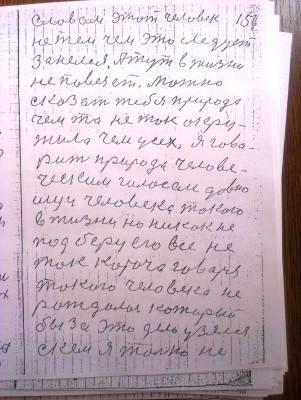 словам этот человек 156
не тем чем это следует
занелся, А тут в жизни
не повезет, можно
сказат тебя природа
чем та не ток окру-
жила чем усех, я гова-
рит природа человe-
ческим голосам довно
ищу человека токого
в жизни но никок не
под беру его все не
ток короча говаря
токого человека не
рождалося который
бы за это дело узялся
скем я толко не